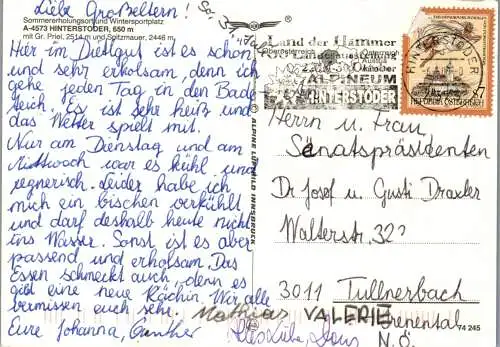 Liebe Großeltern!
Sommererholungsort und Wintersportplatz
A-4573 HINTERSTODER, 650 m
mit Gr. Priel, 2514 m und Spitzmauer, 2446 m
Hier im Dietlgut ist es schön
und sehr erholsam, denn ich
gehe jeden Tag in den Bade-
teich. Es ist sehr heiß und
das Wetter spielt mit.
Nur am Dienstag und am
Mittwoch war es kühl und
regnerisch. Leider habe ich
mich ein bischen verkühlt
und darf deshalb heute nicht
ins Wasser. Sonst ist es aber
passend und erholsam. Das
Essen schmeckt auch, denn es
gibt eine neue Köchin. Wir alle
vermissen euch sehr. Mathias
Eure Johanna, Günther
Alles Liebe,
ALPINE LUFTBILD INNSBRUCK
Land der Hämmer
Landesausstellung
Oktober
ALPINEUM
HINTERSTODER
HINTERSTODER
REPUBLIK ÖSTERREICH
S7
Herrn u. Frau
Senatspräsidenten
Dr Josef u. Gusti Draxler
Walterstr. 32
3011 Tullnerbach
VALERIE
Irenental
74 245
N.Ö.